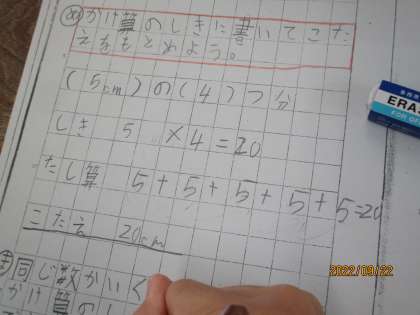 め かけ算のしきに書いてこた
えをもとめよう。
(5cm)の(4)つ分
しき 5 ×4=20
たし算 5+5+5+5+5=20
こたえ 20cm
ま 同じ数がいく
かけ算のし
ERA
FOR
2022/09/22